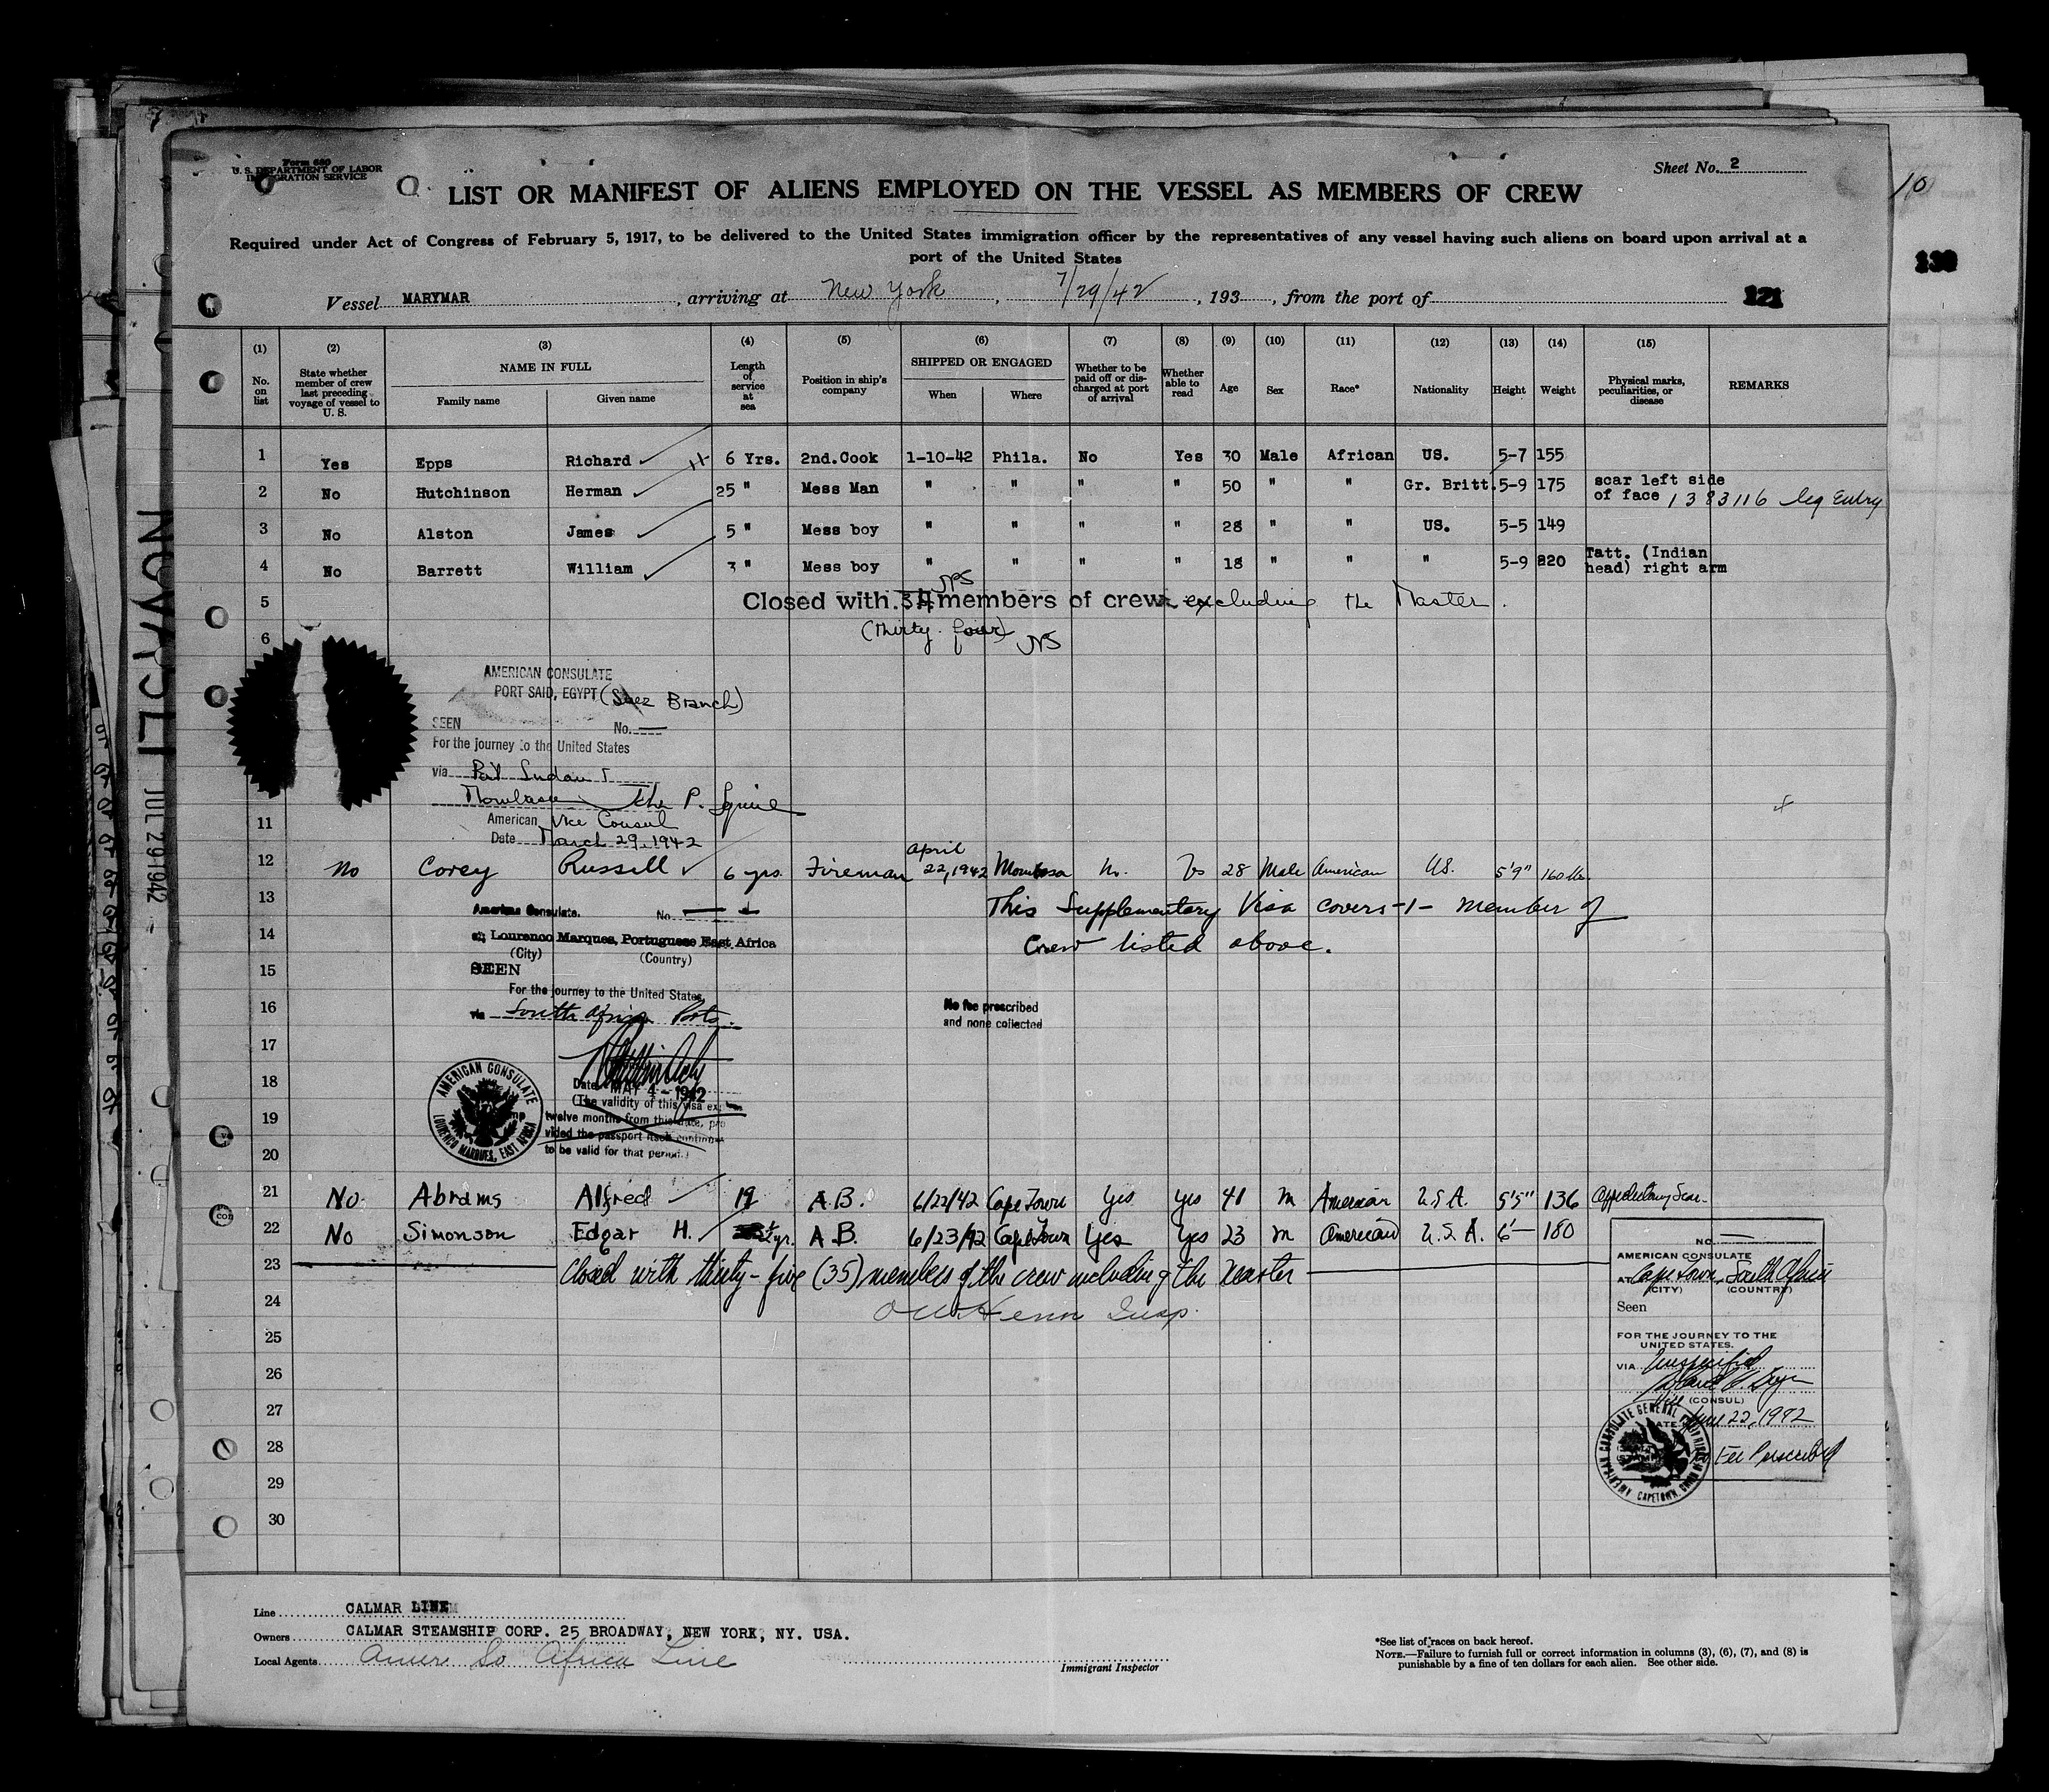 Form 680
U. S. DEPARTMENT OF LABOR
IMMIGRATION SERVICE
Sheet No. 2
10
LIST OR MANIFEST OF ALIENS EMPLOYED ON THE VESSEL AS MEMBERS OF CREW
Required under Act of Congress of February 5, 1917, to be delivered to the United States immigration officer by the representatives of any vessel having such aliens on board upon arrival at a
port of the United States
130
Vessel MARYMAR, arriving at New York, 7/29/42, 193, from the port of 121
(1) (2) (3) (4) (5) (6) (7) (8) (9) (10) (11) (12) (13) (14) (15)
No. on list
State whether member of crew last preceding voyage of vessel to U. S.
NAME IN FULL
Family name
Given name
Length of service at sea
Position in ship's company
SHIPPED OR ENGAGED
When
Where
Whether to be paid off or discharged at port of arrival
Whether able to read
Age
Sex
Race*
Nationality
Height
Weight
Physical marks, peculiarities, or disease
REMARKS
1 Yes Epps Richard 6 Yrs. 2nd.Cook 1-10-42 Phila. No Yes 30 Male African US. 5-7 155
2 No Hutchinson Herman 25 " Mess Man " " " " 50 " " Gr. Britt. 5-9 175 scar left side of face 1383116 leg Entry
3 No Alston James 5 " Mess boy " " " " 28 " " US. 5-5 149
4 No Barrett William 3 " Mess boy " " " " 18 " " " 5-9 220 Tatt. (Indian head) right arm
5 Closed with 34 members of crew excluding the Master.
6 (Thirty four)
AMERICAN CONSULATE
PORT SAID, EGYPT (Suez Branch)
SEEN No. —
For the journey to the United States
via Port Sudan
Mombasa John P. Squire
American Vice Consul
Date March 29, 1942
11
12 No Corey Russell 6 yrs. Fireman April 22, 1942 Mombasa No. Yes 28 Male American US. 5'9" 160 lbs.
13 This Supplementary Visa covers -1- member of
14 Crew listed above.
American Consulate. No. —
at Lourenco Marques, Portuguese East Africa
(City) (Country)
15 SEEN
For the journey to the United States
16 via South Africa Ports.
No fee prescribed
and none collected
17
18 Date MAY 4 - 1942
(The validity of this visa ex
19 twelve months from this date, pro
vided the passport itself continues
20 to be valid for that period.)
AMERICAN CONSULATE
LOURENCO MARQUES, EAST AFRICA
21 No. Abrams Alfred 19 A.B. 6/22/42 Cape Town Yes yes 41 m American U.S.A. 5'5" 136 Appendectomy Scar.
22 No Simonson Edgar H. yr. A.B. 6/23/42 Cape Town Yes Yes 23 m American U.S.A. 6' 180
23 Closed with thirty-five (35) members of the crew including the Master
24
25
26
27
28
29
30
NO. —
AMERICAN CONSULATE
AT Cape Town, South Africa
(CITY) (COUNTRY)
Seen
FOR THE JOURNEY TO THE
UNITED STATES.
VIA Unspecified
Vice (CONSUL)
DATE June 22, 1942
No Fee Prescribed
AMERICAN CONSULATE GENERAL
CAPETOWN,
NOV
JUL 29 1942
Line CALMAR LINE
Owners CALMAR STEAMSHIP CORP. 25 BROADWAY, NEW YORK, NY. USA.
Local Agents Amer. So Africa Line
Immigrant Inspector
*See list of races on back hereof.
NOTE.—Failure to furnish full or correct information in columns (3), (6), (7), and (8) is
punishable by a fine of ten dollars for each alien. See other side.